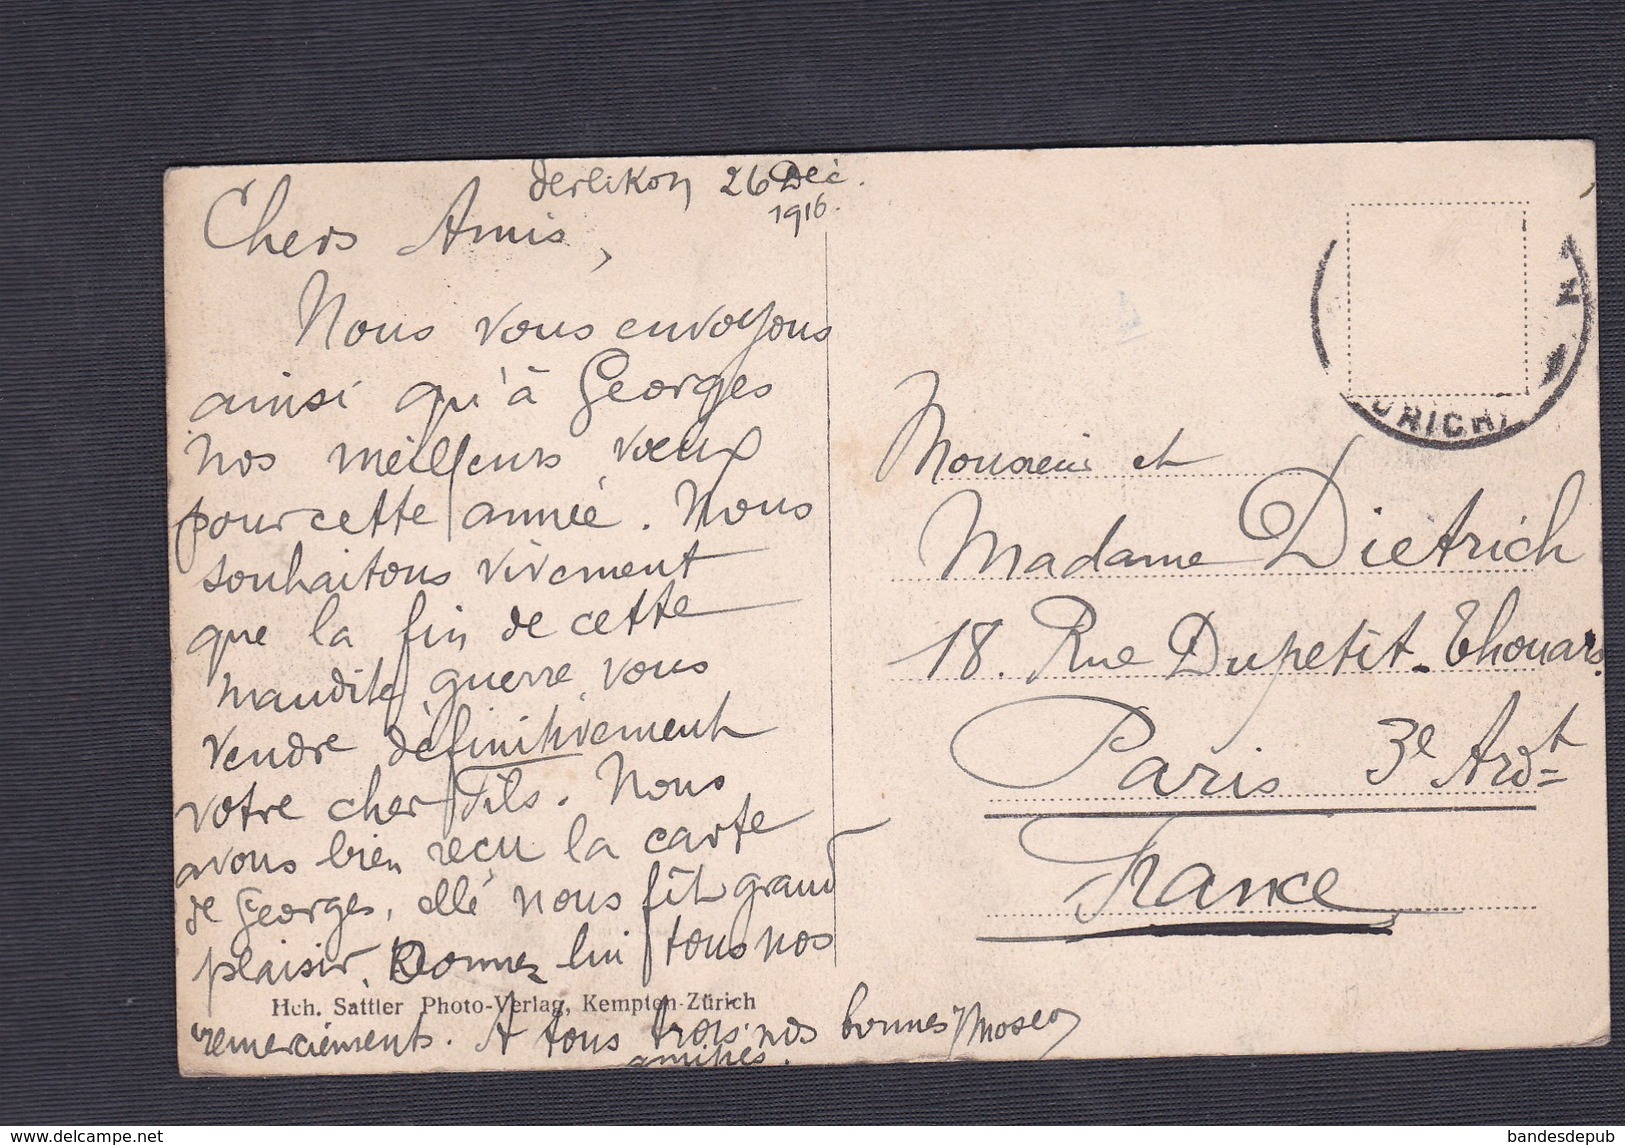 Oerlikon 26 Déc.
1916.
Chers Amis,
Nous vous envoyons
ainsi qu'à Georges
nos meilleurs vœux
pour cette année. Nous
souhaitons vivement
que la fin de cette
maudite guerre, vous
rendre définitivement
votre cher Fils. Nous
avons bien reçu la carte
de Georges, elle nous fît grand
plaisir. Donnez lui tous nos
Hch. Sattler Photo-Verlag, Kempten-Zürich
remerciements. A tous trois nos bonnes
amitiés.
URICH
Monsieur et
Madame Dietrich
18. Rue Dupetit-Thouars.
Paris 3e Ardt
France
bandesdepub
www.delcampe.net